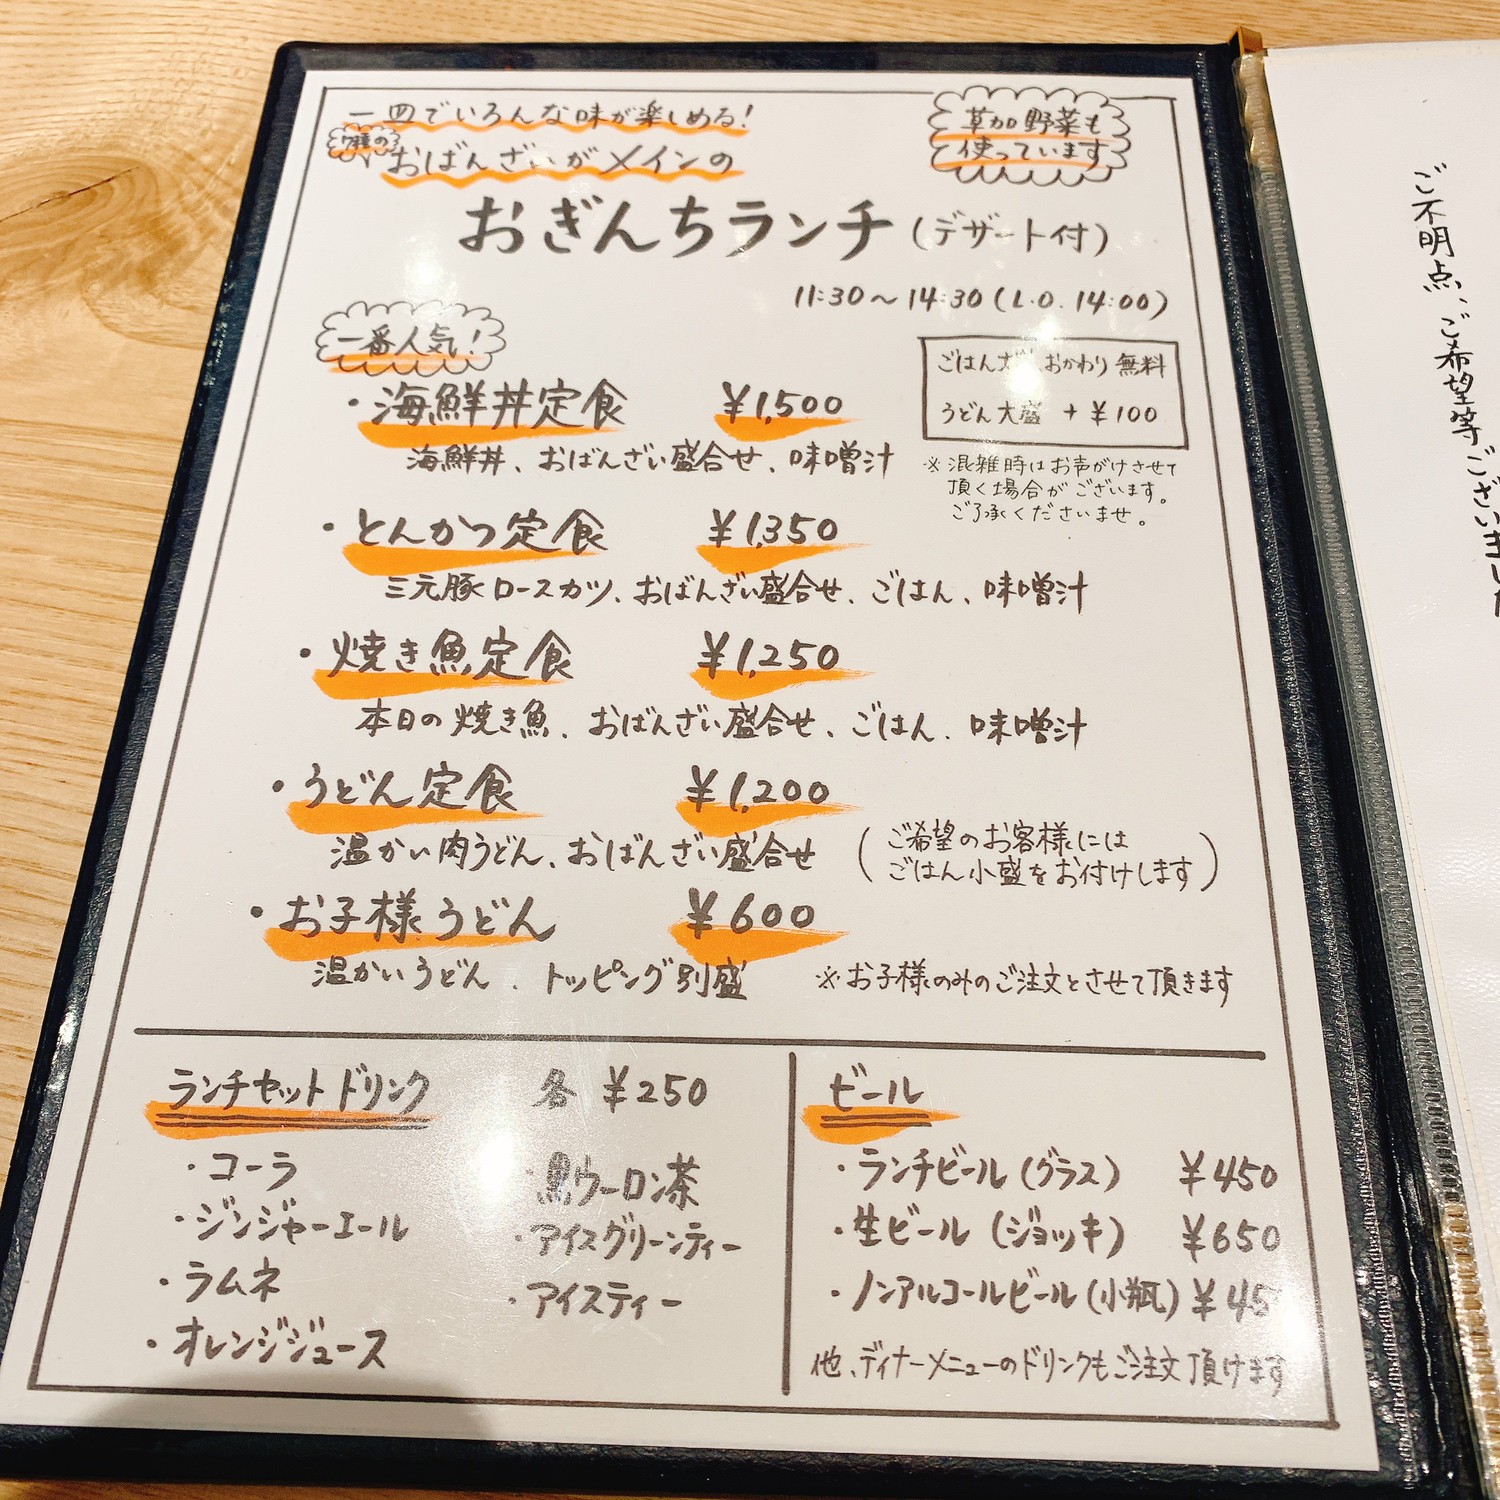 一皿でいろんな味が楽しめる!
7種の
おばんざいがメインの
草加野菜も
使っています
おぎんちランチ(デザート付)
11:30〜14:30(L.O.14:00)
一番人気!
・海鮮丼定食 ¥1,500
海鮮丼、おばんざい盛合せ、味噌汁
ごはん おかわり 無料
うどん大盛 + ¥100
※混雑時はお声がけさせて
頂く場合がございます。
ご了承くださいませ。
・とんかつ定食 ¥1,350
三元豚ロースカツ、おばんざい盛合せ、ごはん、味噌汁
・焼き魚定食 ¥1,250
本日の焼き魚、おばんざい盛合せ、ごはん、味噌汁
・うどん定食 ¥1,200
温かい肉うどん、おばんざい盛合せ
(ご希望のお客様には
ごはん小盛をお付けします)
・お子様うどん ¥600
温かいうどん、トッピング別盛
※お子様のみのご注文とさせて頂きます
ランチセットドリンク 各 ¥250
・コーラ
・ジンジャーエール
・ラムネ
・オレンジジュース
・黒ウーロン茶
・アイスグリーンティー
・アイスティー
ビール
・ランチビール(グラス) ¥450
・生ビール(ジョッキ) ¥650
・ノンアルコールビール(小瓶) ¥45
他、ディナーメニューのドリンクもご注文頂けます
ご不明点、ご希望等ございましたら